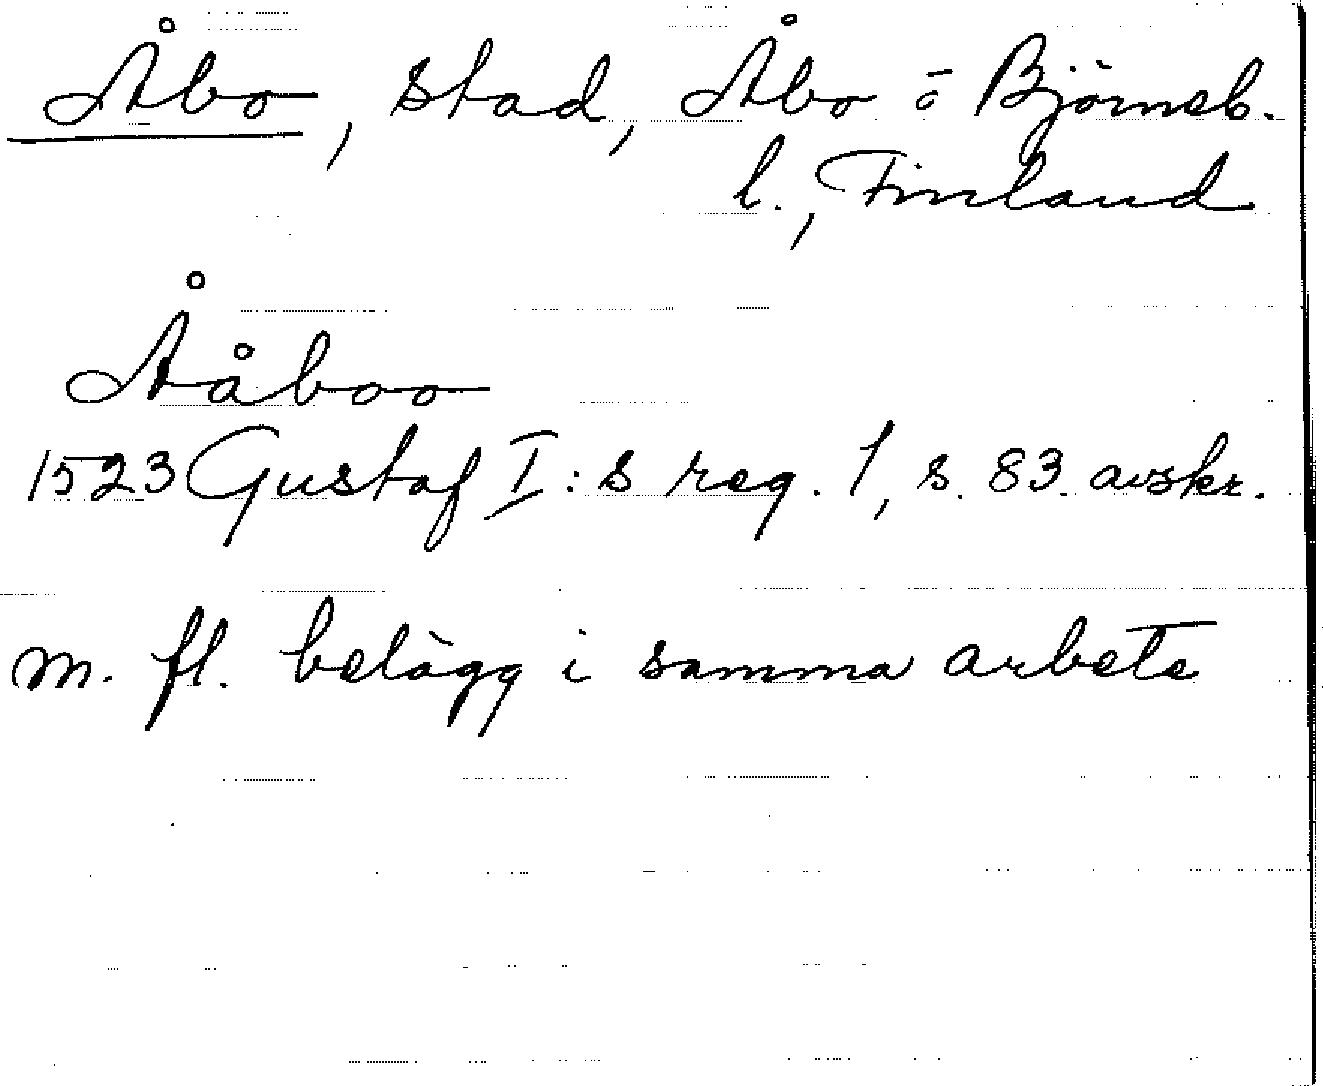 Åbo, stad, Åbo o Björneb.
l., Finland
Ååboo
1523 Gustaf I:s reg. 1, s. 83. avskr.
m. fl. belägg i samma arbete